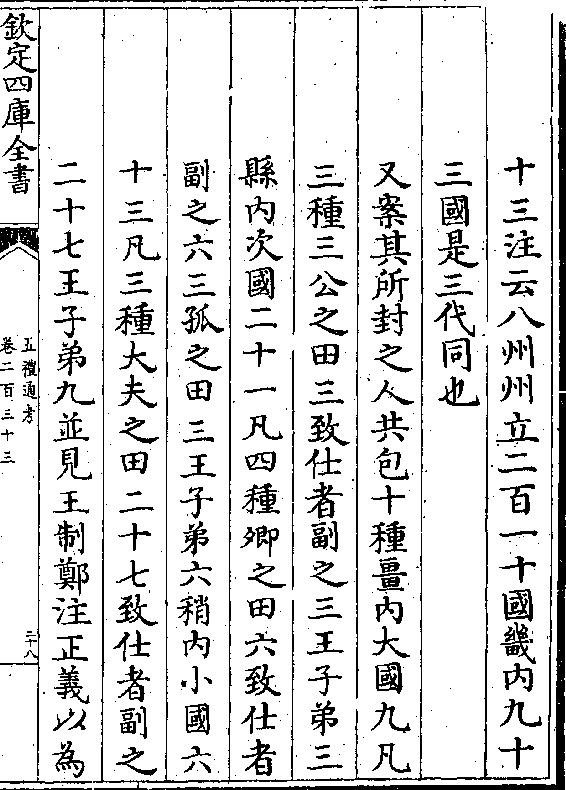 十三注云八州州立二百一十國畿内九十
三國是三代同也
又案其所封之人共包十種畺内大國九凡
三種三公之田三致仕者副之三王子弟三
縣内次國二十一凡四種卿之田六致仕者
副之六三孤之田三王子弟六稍内小國六
十三凡三種大夫之田二十七致仕者副之
二十七王子弟九並見王制鄭注正義以為
欽定四庫全書
五禮通考
卷二百三十三
三十八